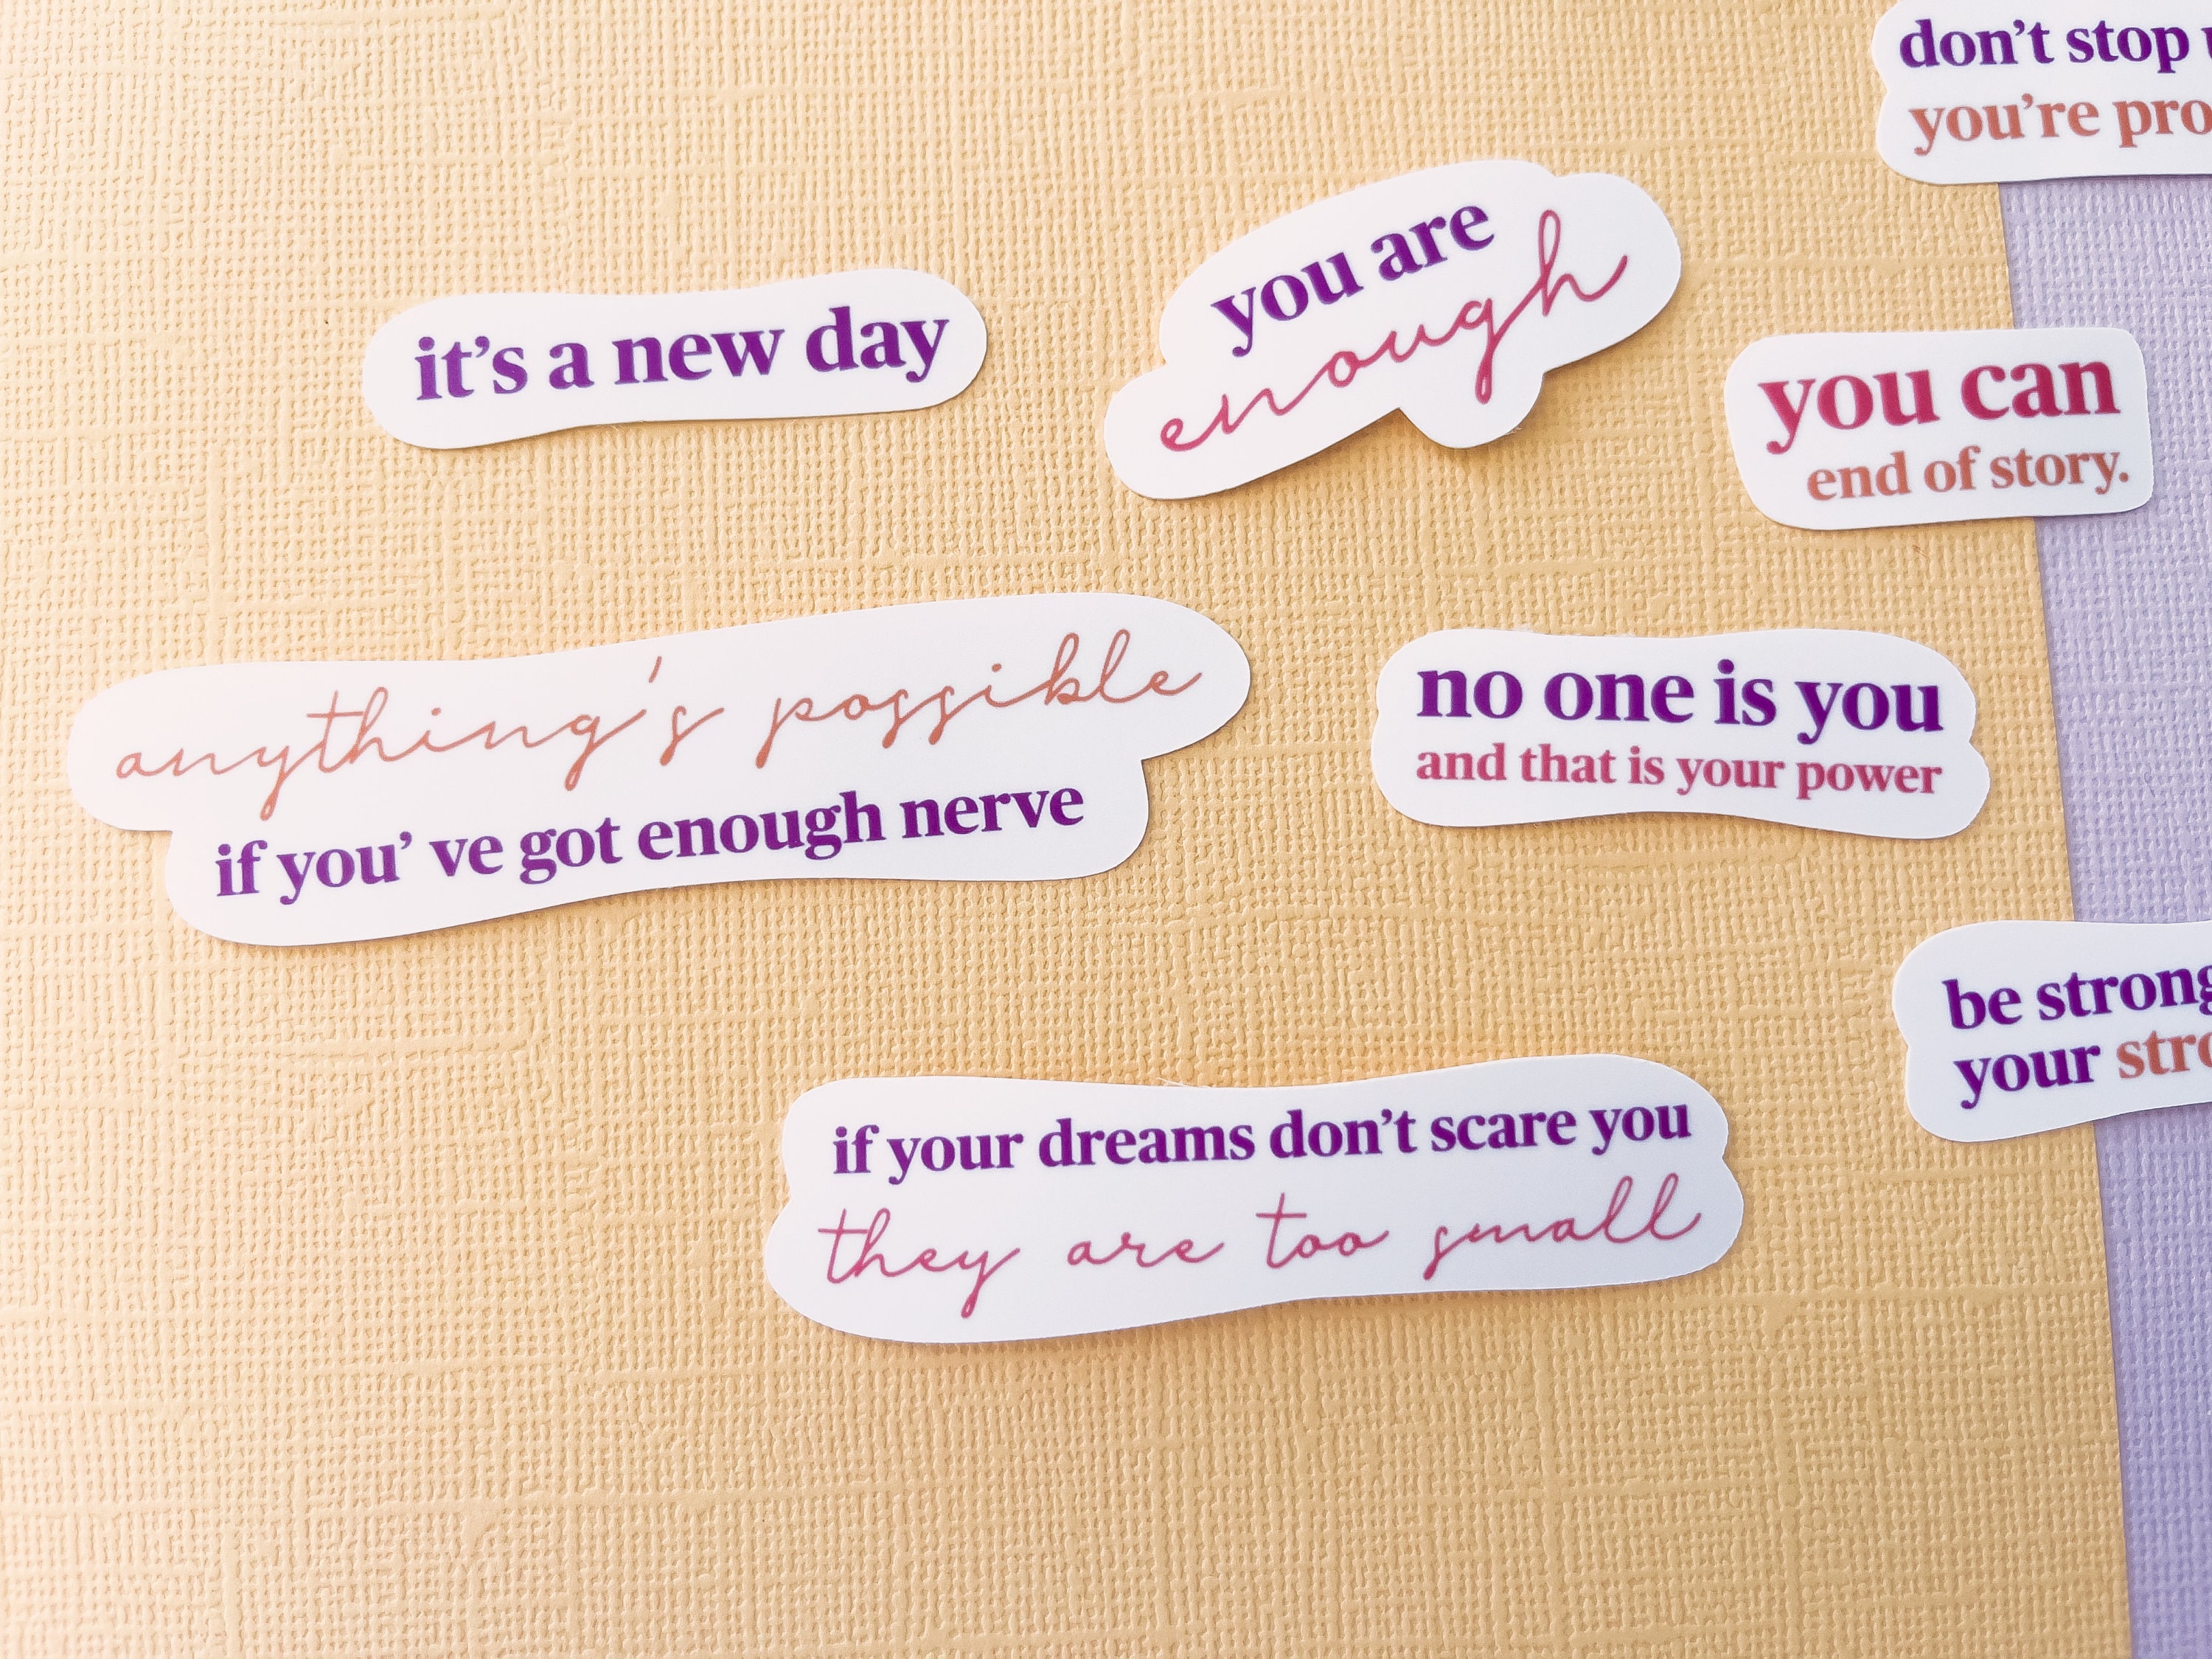 don't stop
you're
you are
enough
it's a new day
you can
end of story.
anything's possible
if you' ve got enough nerve
no one is you
and that is your power
be strong
your
if your dreams don't scare you
they are too small